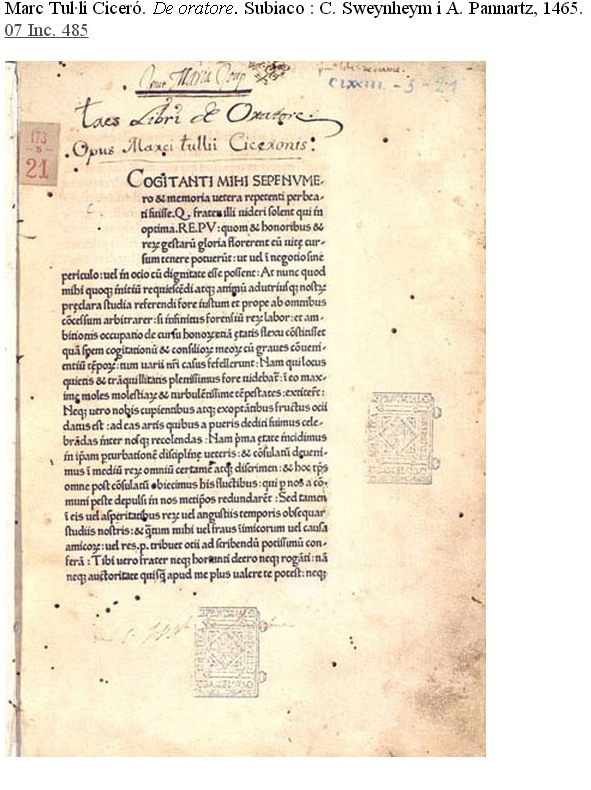 Marc Tul·li Ciceró. De oratore. Subiaco : C. Sweynheym i A. Pannartz, 1465.
07 Inc. 485
CLXXIII - 3 - 21
Opus Marci tullii Ciceronis:
173
21
COGITANTI MIHI SEPENVME-
ro & memoria uetera repetenti perbea-
ti fuisse. Q. frater illi uideri solent qui in
optima. RE. PV: quom & honoribus &
reꝝ gestarū gloria florerent eū uitę cur-
sum tenere potuerūt: ut uel ī negotio sine
periculo: uel in ocio cū dignitate esse possent: At nunc quod
mihi quoqȝ initiū requiescēdi atqȝ animū ad utriusqȝ nostꝝ
pręclara studia referendi fore iustum et prope ab omnibus
cōcessum arbitrarer: si infinitus forensiū reꝝ labor: et am-
bitionis occupatio de cursu honoꝝ etiā ętatis flexu cōstitisset
quā spem cogitationū & consilioꝝ meoꝝ cū graues cōueni-
entiū tēpoꝝ: tum uarii nr̄i casus fefellerunt: Nam qui locus
quietis & trāquillitatis plenissimus fore uidebat̄: ī eo max-
imę moles molestiaꝝ & turbulētissime tēpestates: extitere:
Neqȝ uero nobis cupientibus atqȝ exoptātibus fructus ocii
datus est: ad eas artis quibus a pueris dediti fuimus cele-
brādas inter nosqȝ recolendas: Nam p̄ma ętate incidimus
in ip̄am p̱turbationē disciplinę ueteris: & cōsulatū deueni-
mus ī mediū reꝝ omniū certamē atqȝ discrimen: & hoc tp̄s
omne post cōsulatū obiecimus his fluctibus: qui p̱ nos a cō-
muni peste depulsi in nos metip̄os redundarēt: Sed tamen
ī eis uel asperitatibus reꝝ uel angustiis temporis obsequar
studiis nostris: & q̄tum mihi uel fraus īimicorum uel causa
amicoꝝ: uel res. p. tribuet otii ad scribendū potissimū con-
ferā: Tibi uero frater neqȝ hortanti deero neqȝ rogāti: nā
neqȝ auctoritate quisq̄ apud me plus ualere te potest: neqȝ